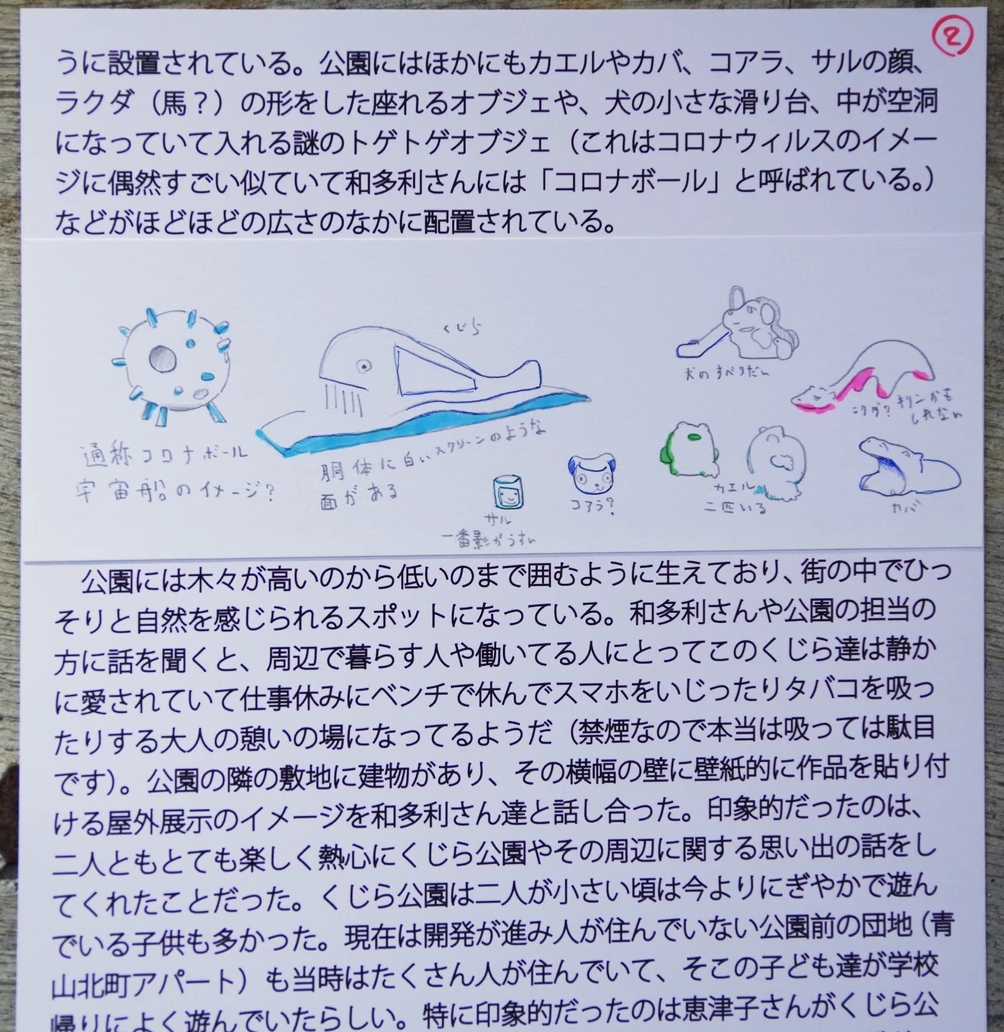 ②
うに設置されている。公園にはほかにもカエルやカバ、コアラ、サルの顔、
ラクダ（馬？）の形をした座れるオブジェや、犬の小さな滑り台、中が空洞
になっていて入れる謎のトゲトゲオブジェ（これはコロナウィルスのイメー
ジに偶然すごい似ていて和多利さんには「コロナボール」と呼ばれている。）
などがほどほどの広さのなかに配置されている。
通称コロナボール
宇宙船のイメージ？
くじら
胴体に白いスクリーンのような
面がある
サル
一番影がうすい
コアラ？
犬のすべりだい
カエル
二匹いる
キリンかも
しれない
カバ
公園には木々が高いのから低いのまで囲むように生えており、街の中でひっ
そりと自然を感じられるスポットになっている。和多利さんや公園の担当の
方に話を聞くと、周辺で暮らす人や働いてる人にとってこのくじら達は静か
に愛されていて仕事休みにベンチで休んでスマホをいじったりタバコを吸っ
たりする大人の憩いの場になってるようだ（禁煙なので本当は吸っては駄目
です）。公園の隣の敷地に建物があり、その横幅の壁に壁紙的に作品を貼り付
ける屋外展示のイメージを和多利さん達と話し合った。印象的だったのは、
二人ともとても楽しく熱心にくじら公園やその周辺に関する思い出の話をし
てくれたことだった。くじら公園は二人が小さい頃は今よりにぎやかで遊ん
でいる子供も多かった。現在は開発が進み人が住んでいない公園前の団地（青
山北町アパート）も当時はたくさん人が住んでいて、そこの子ども達が学校
帰りによく遊んでいたらしい。特に印象的だったのは恵津子さんがくじら公